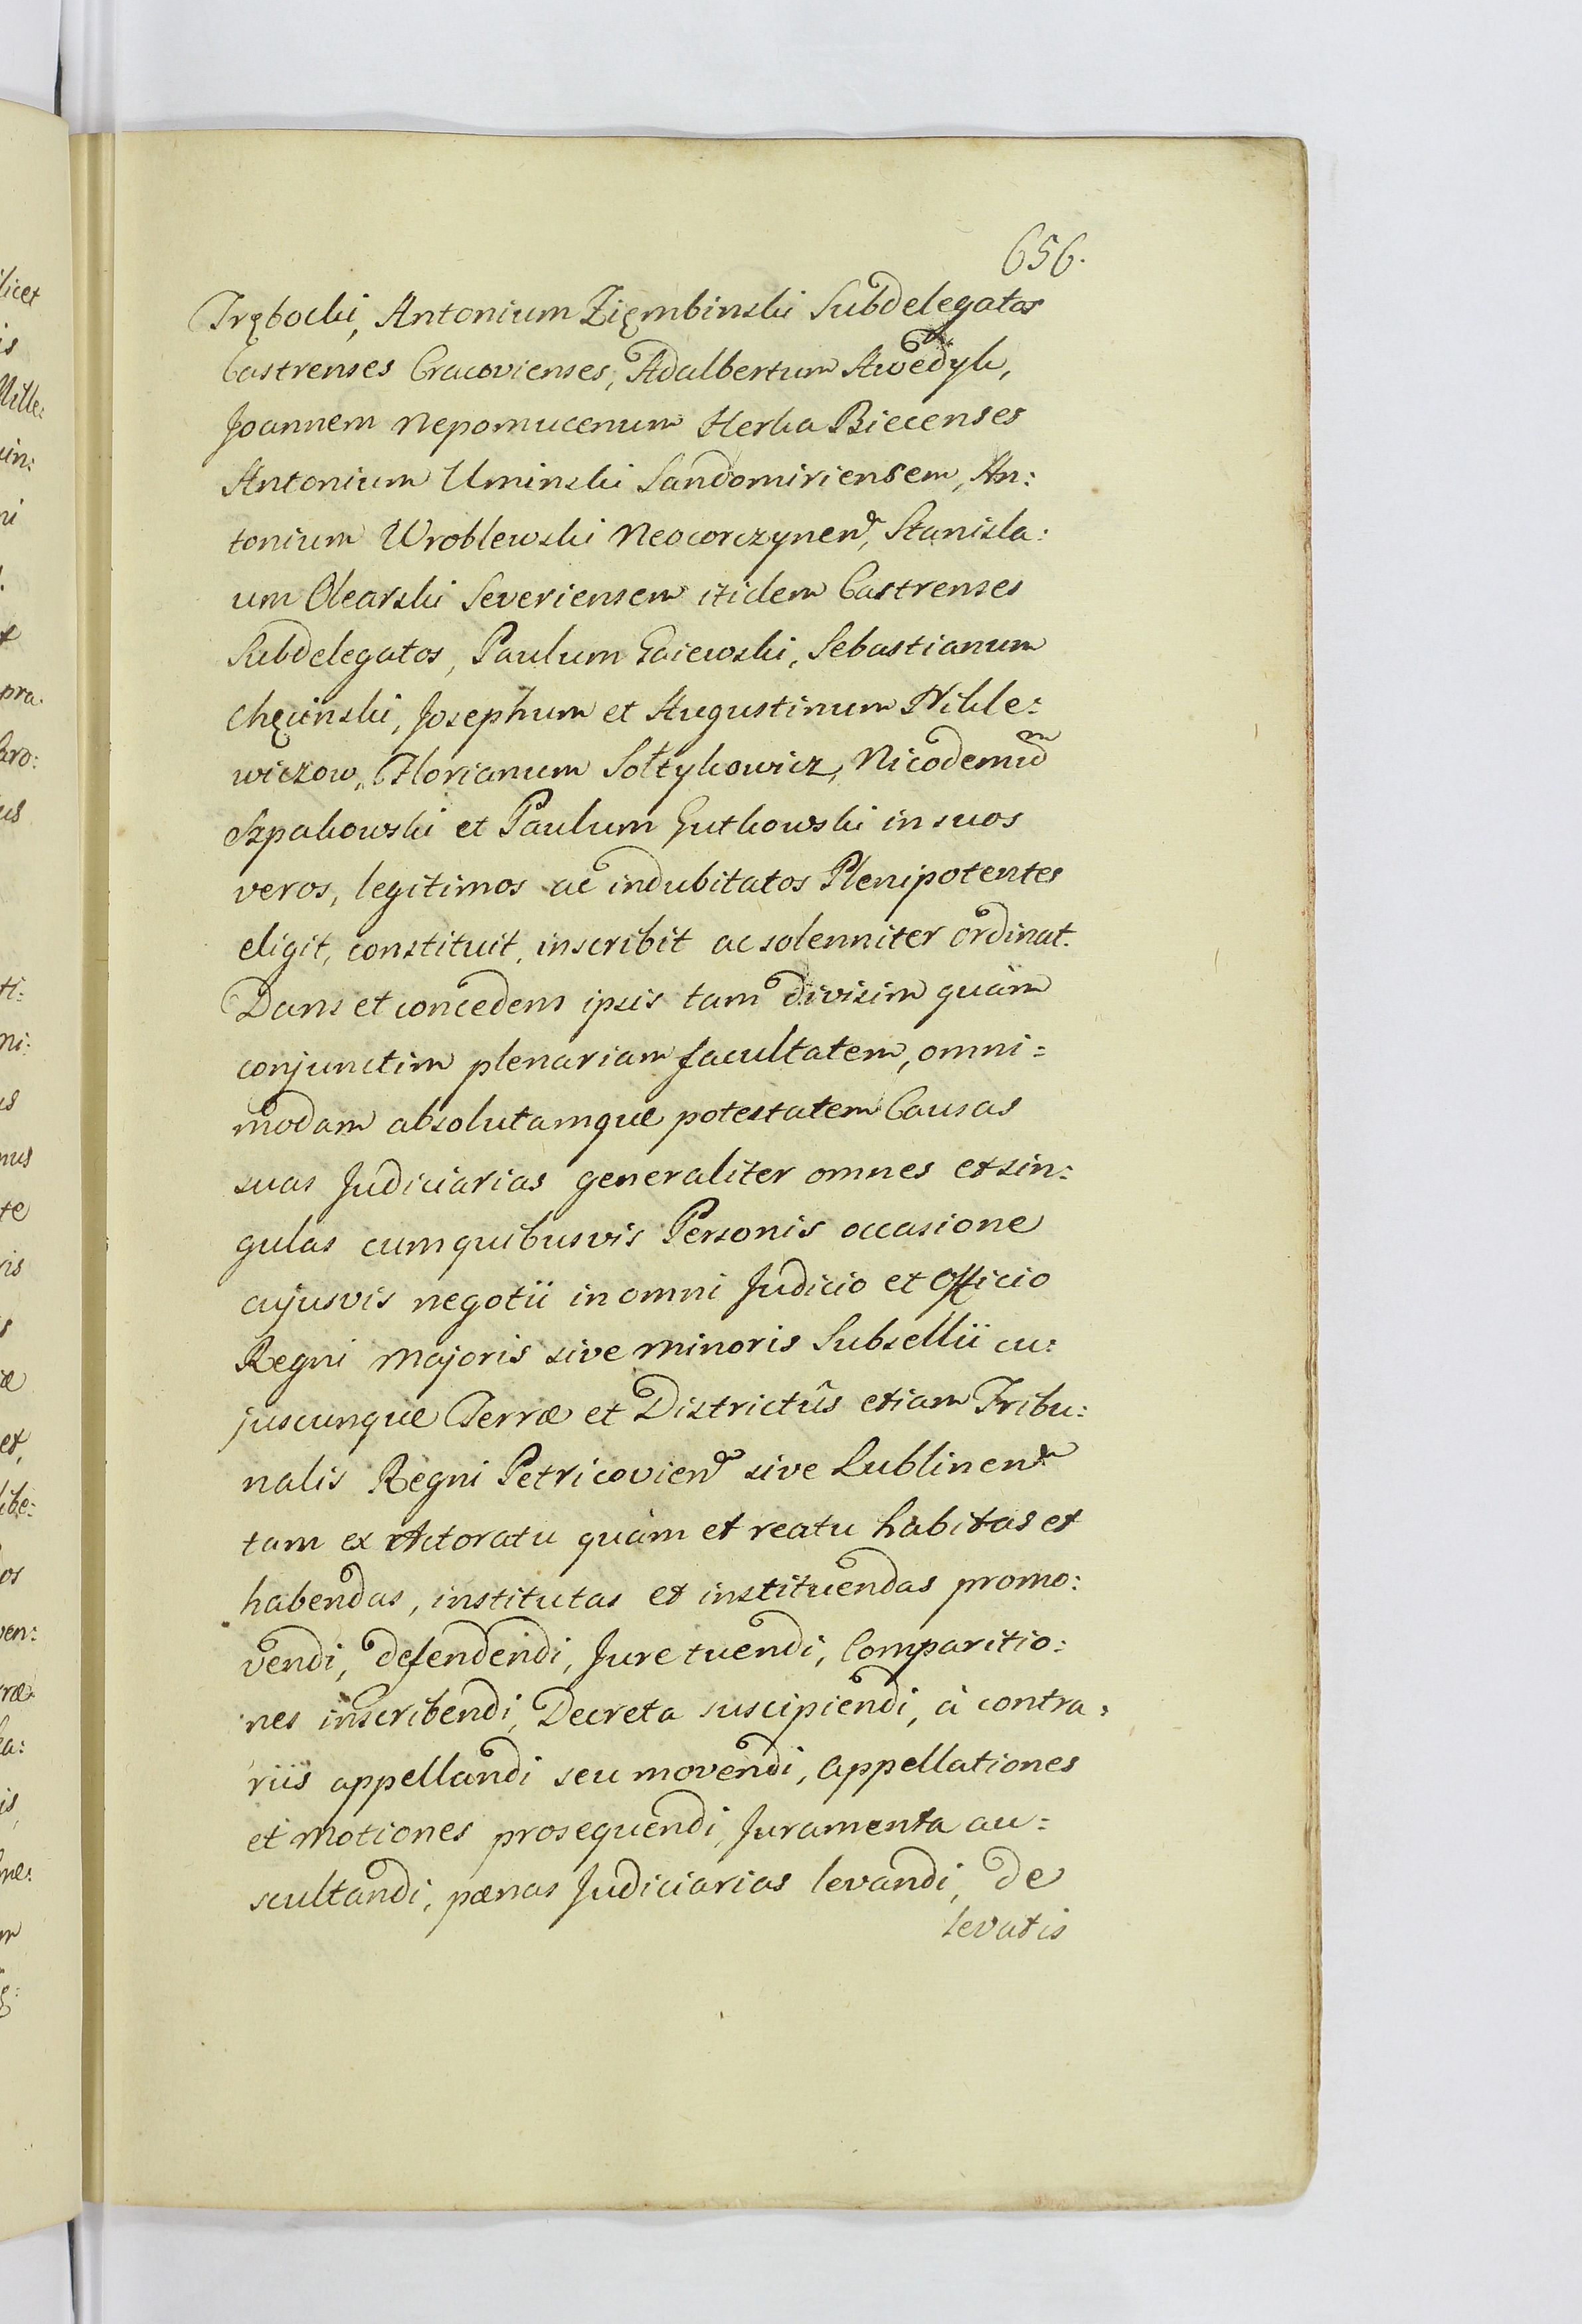 656.
Trębocki, Antonium Ziembinski Subdelegatos
Castrenses Cracovienses, Adalbertum Awedyk,
Joannem Nepomucenum Herka Biecenses
Antonium Uminski Sandomiriensem, An:
tonium Wroblewski Neocorczynen, Stanisla:
um Olearski Severiensem itidem Castrenses
Subdelegatos, Paulum Gaiewski, Sebastianum
Chęcinski, Josephum et Augustinum Nikle:
wiczow, Florianum Sołtykowicz, Nicodemum
Szpakowski et Paulum Gutkowski in suos
veros, legitimos ac indubitatos Plenipotentes
eligit, constituit, inscribit ac solenniter ordinat.
Dans et concedens ipsis tam divisim quàm
conjunctim plenariam facultatem, omni=
modam absolutamque potestatem Causas
suas Judiciarias generaliter omnes et sin:
gulas cum quibusvis Personis occasione
cujusvis negotii in omni Judicio et Officio
Regni Majoris sive Minoris Subsellii cu:
juscunque Terræ et Districtûs etiam Tribu:
nalis Regni Petricovien sive Lublinen
tam ex Actoratu quàm et reatu habitas et
habendas, institutas et instituendas promo:
vendi, defendendi, Jure tuendi, Comparitio:
nes inscribendi, Decreta suscipiendi, à contra:
riis appellandi seu movendi, Appellationes
et Motiones prosequendi, Juramenta au=
scultandi, pænas Judiciarias levandi, de
levatis